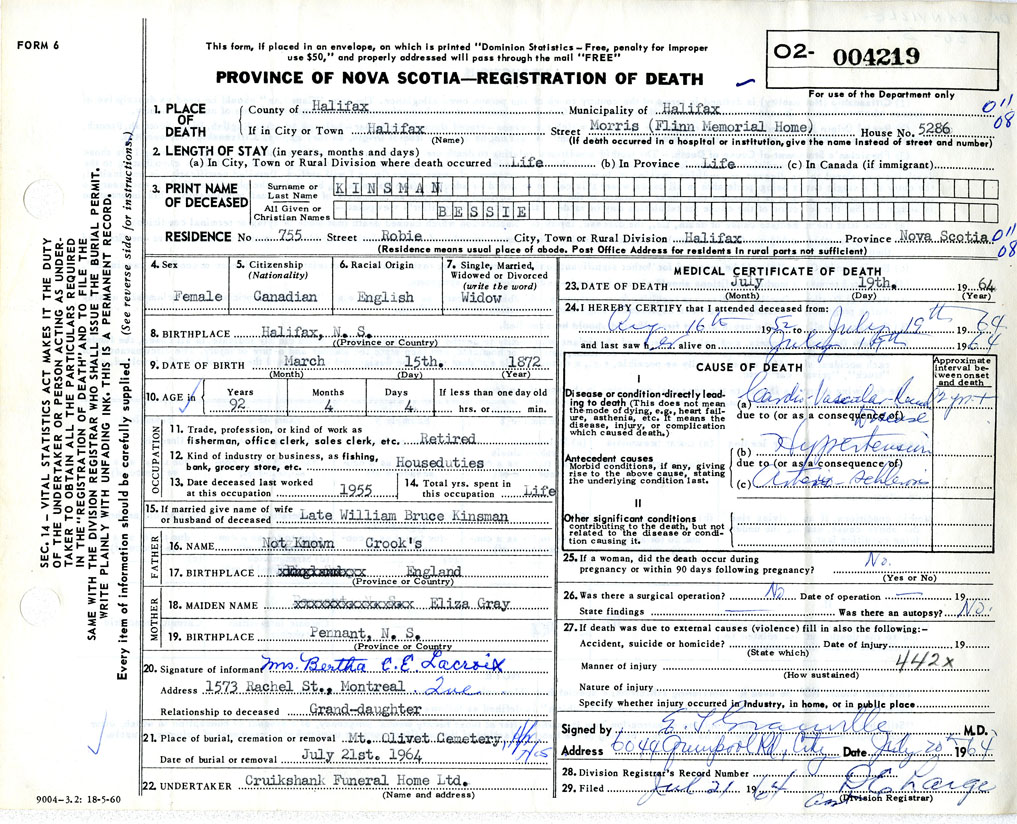 FORM 6
This form, if placed in an envelope, on which is printed "Dominion Statistics – Free, penalty for improper
use $50," and properly addressed will pass through the mail "FREE"
02- 004219
For use of the Department only
PROVINCE OF NOVA SCOTIA—REGISTRATION OF DEATH
1. PLACE OF DEATH County of Halifax Municipality of Halifax 0'11
08
If in City or Town Halifax (Name) Street Morris (Flinn Memorial Home) House No. 5286
(If death occurred in a hospital or institution, give the name instead of street and number)
2. LENGTH OF STAY (in years, months and days)
(a) In City, Town or Rural Division where death occurred Life (b) In Province Life (c) In Canada (if immigrant)
3. PRINT NAME OF DECEASED Surname or Last Name KINSMAN
All Given or Christian Names BESSIE
RESIDENCE No 755 Street Robie City, Town or Rural Division Halifax Province Nova Scotia 0'11
08
(Residence means usual place of abode. Post Office Address for residents in rural parts not sufficient)
4. Sex Female
5. Citizenship (Nationality) Canadian
6. Racial Origin English
7. Single, Married, Widowed or Divorced (write the word) Widow
8. BIRTHPLACE Halifax, N. S.
(Province or Country)
9. DATE OF BIRTH March 15th. 1872
(Month) (Day) (Year)
10. AGE in Years 92 Months 4 Days 4 If less than one day old hrs. or min.
OCCUPATION
11. Trade, profession, or kind of work as
fisherman, office clerk, sales clerk, etc. Retired
12. Kind of industry or business, as fishing,
bank, grocery store, etc. Houseduties
13. Date deceased last worked at this occupation 1955
14. Total yrs. spent in this occupation Life
15. If married give name of wife
or husband of deceased Late William Bruce Kinsman
FATHER
16. NAME Not Known Crook's
17. BIRTHPLACE England
(Province or Country)
MOTHER
18. MAIDEN NAME Eliza Gray
19. BIRTHPLACE Pennant, N. S.
(Province or Country
20. Signature of informant Mrs. Bertha C. E. Lacroix
Address 1573 Rachel St., Montreal. Que
Relationship to deceased Grand-daughter
21. Place of burial, cremation or removal Mt. Olivet Cemetery,
Date of burial or removal July 21st. 1964
22. UNDERTAKER Cruikshank Funeral Home Ltd.
(Name and address)
9004-3.2: 18-5-60
MEDICAL CERTIFICATE OF DEATH
23. DATE OF DEATH July 19th. 1964
(Month) (Day) (Year)
24. I HEREBY CERTIFY that I attended deceased from:
Aug 16th 195 to July 19th 1964
and last saw her alive on July 19th 1964
CAUSE OF DEATH
Approximate interval between onset and death
I
Disease or condition directly leading to death (This does not mean the mode of dying, e.g., heart failure, asthenia, etc. It means the disease, injury, or complication which caused death.)
(a) Cardio-Vascular-Renal Disease 2 yrs +
due to (or as a consequence of)
(b) Hypertension
Antecedent causes
Morbid conditions, if any, giving rise to the above cause, stating the underlying condition last.
due to (or as a consequence of)
(c)
II
Other significant conditions
contributing to the death, but not related to the disease or condition causing it.
25. If a woman, did the death occur during
pregnancy or within 90 days following pregnancy? No.
(Yes or No)
26. Was there a surgical operation? No Date of operation — 19
State findings — Was there an autopsy? No.
27. If death was due to external causes (violence) fill in also the following:–
Accident, suicide or homicide? Date of injury 19
(State which)
Manner of injury 442x
(How sustained)
Nature of injury
Specify whether injury occurred in industry, in home, or in public place
Signed by E. S. Granville M.D.
Address 6044 Quinpool Rd, City Date July 20th 1964
28. Division Registrar's Record Number
29. Filed Jul 21 1964 D E Large
(Division Registrar)
SEC. 14 – VITAL STATISTICS ACT MAKES IT THE DUTY
OF THE UNDERTAKER OR PERSON ACTING AS UNDER-
TAKER TO OBTAIN ALL THE PARTICULARS REQUIRED
IN THE "REGISTRATION OF DEATH" AND TO FILE THE
SAME WITH THE DIVISION REGISTRAR WHO SHALL ISSUE THE BURIAL PERMIT.
WRITE PLAINLY WITH UNFADING INK. THIS IS A PERMANENT RECORD.
Every item of information should be carefully supplied. (See reverse side for instructions.)